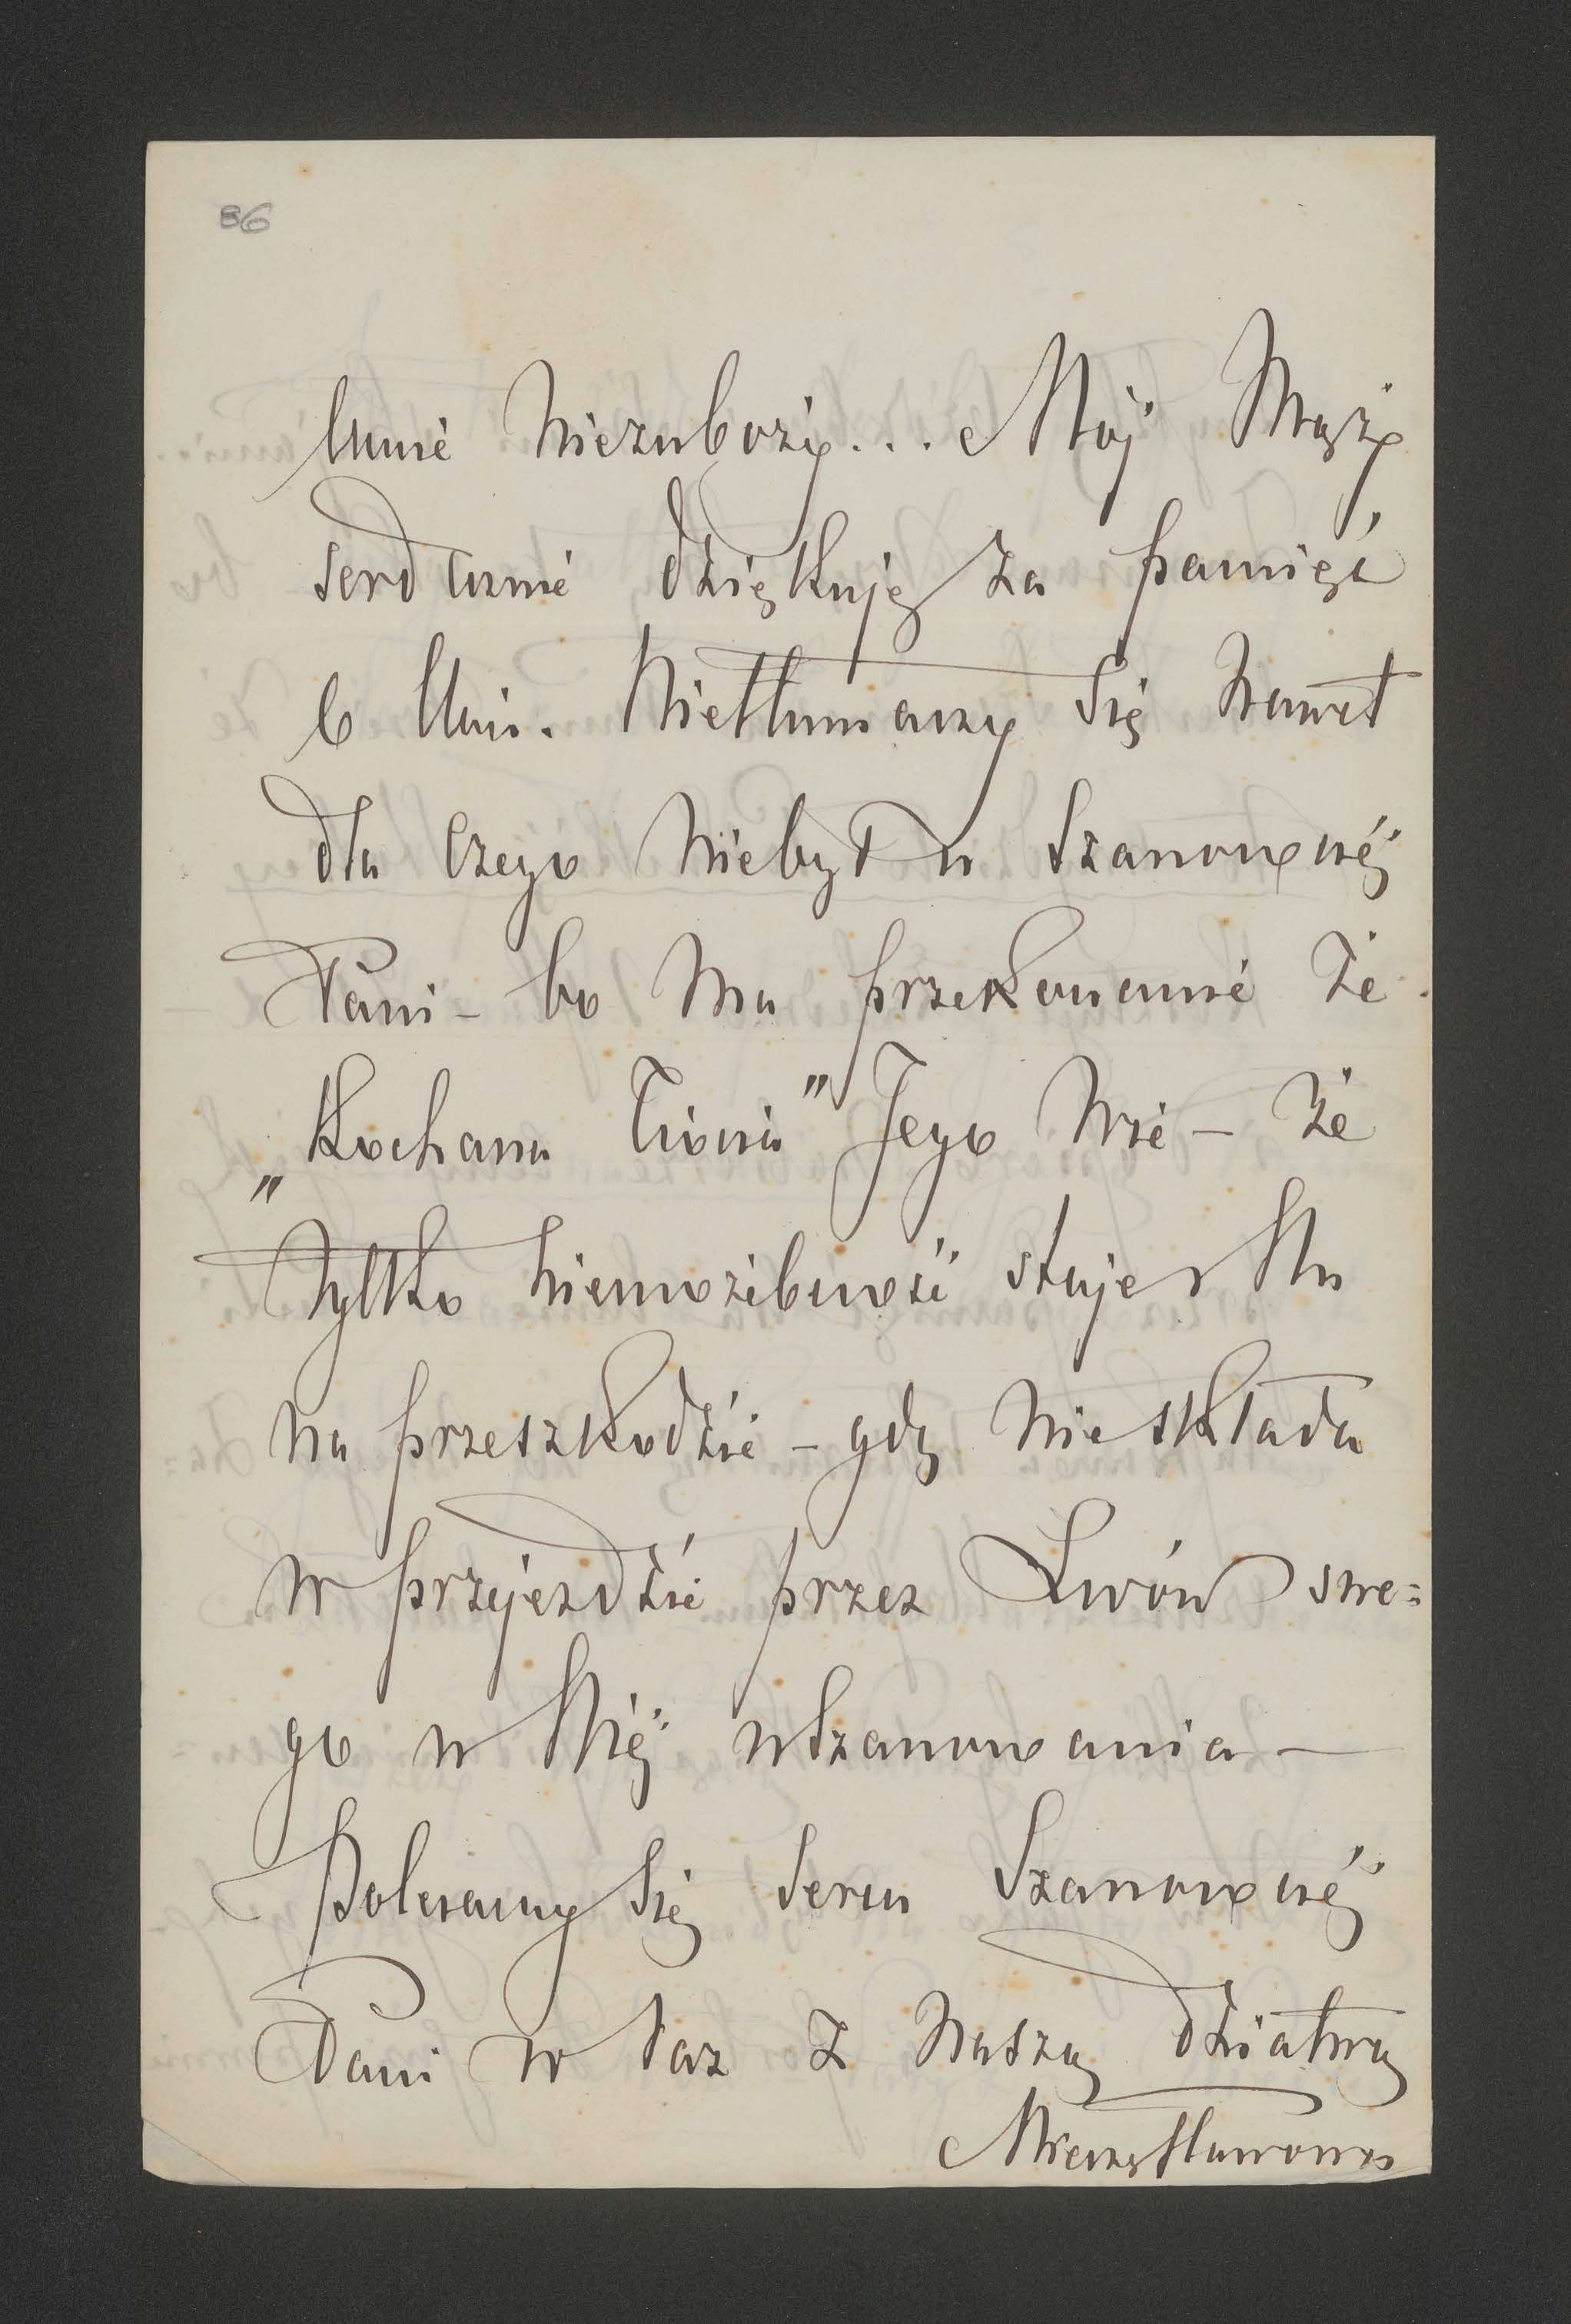 86
mnie niezuboży... Mój Mąż
serdecznie dziękuję za pamięć
o Nim. Nietłumaczy się nawet
dla czego niebył u Szanownéj
Pani - bo ma przekonanie że
„Kochana Ciocia" Jego wie - że
tylko niemożebność staje Mu
na przeszkodzie - gdy nieskłada
w przejeździe przez Lwów swe=
go u Niéj uszanowania -
Polecamy się sercu Szanownéj
Pani w raz z naszą dziatwą
Mieczysławowa